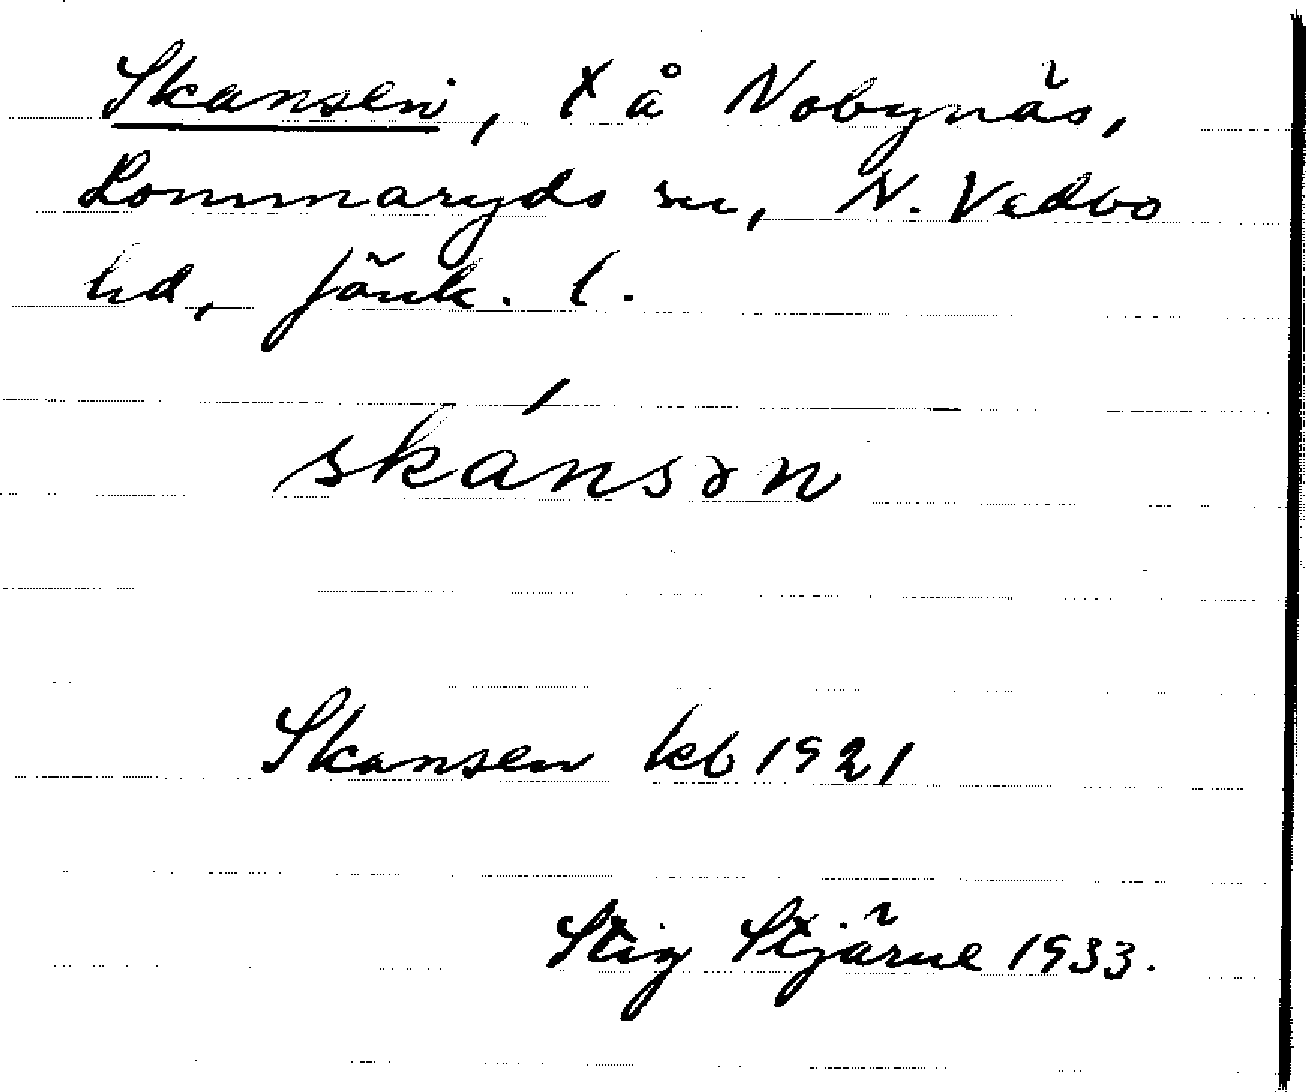 Skansen, t å Nobynäs,
Lommaryds sn, N. Vedbo
hd, Jönk. l.
skánsən
Skansen kb 1921
Stig Stjärne 1933.